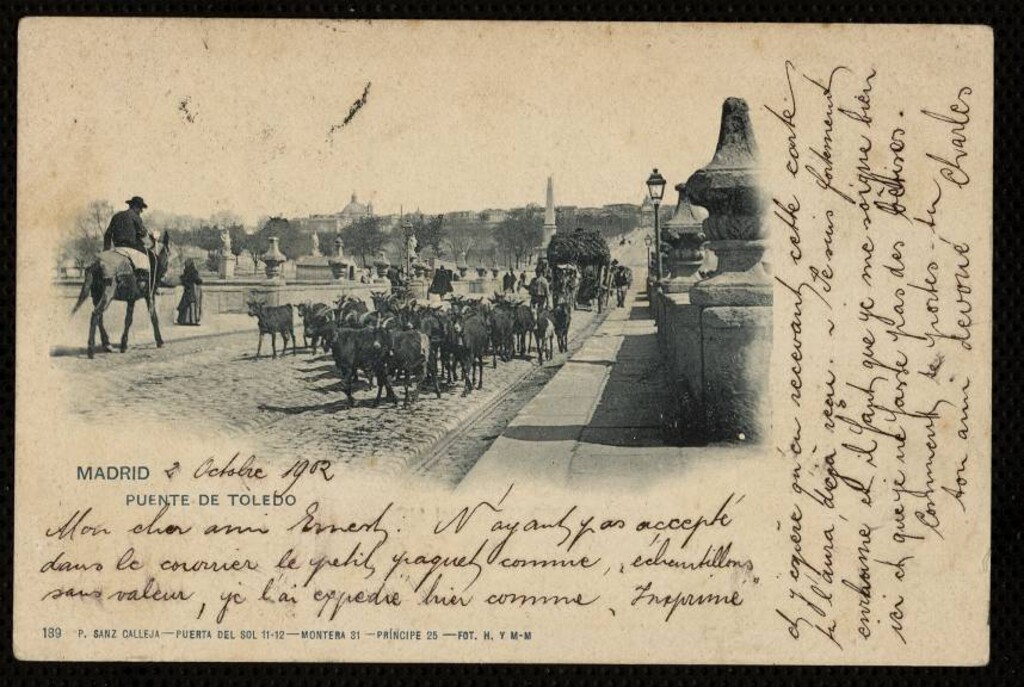 MADRID 2 Octobre 1902
PUENTE DE TOLEDO
Mon cher ami Ernest. N'ayant pas accepté
dans le courrier le petit paquet comme „échantillons
sans valeur, je l'ai expédié hier comme „Imprimé"
189 P. SANZ CALLEJA — PUERTA DEL SOL 11-12 — MONTERA 31 — PRÍNCIPE 25 — FOT. H. Y M-M
et j'espère qu'en recevant cette carte
tu l'aura déjà reçu. ~ Je suis fortement
enrhumé et il faut que je me soigne bien
ici et que je ne fasse pas des bêtises.
Comment te portes-tu
ton ami dévoué Charles